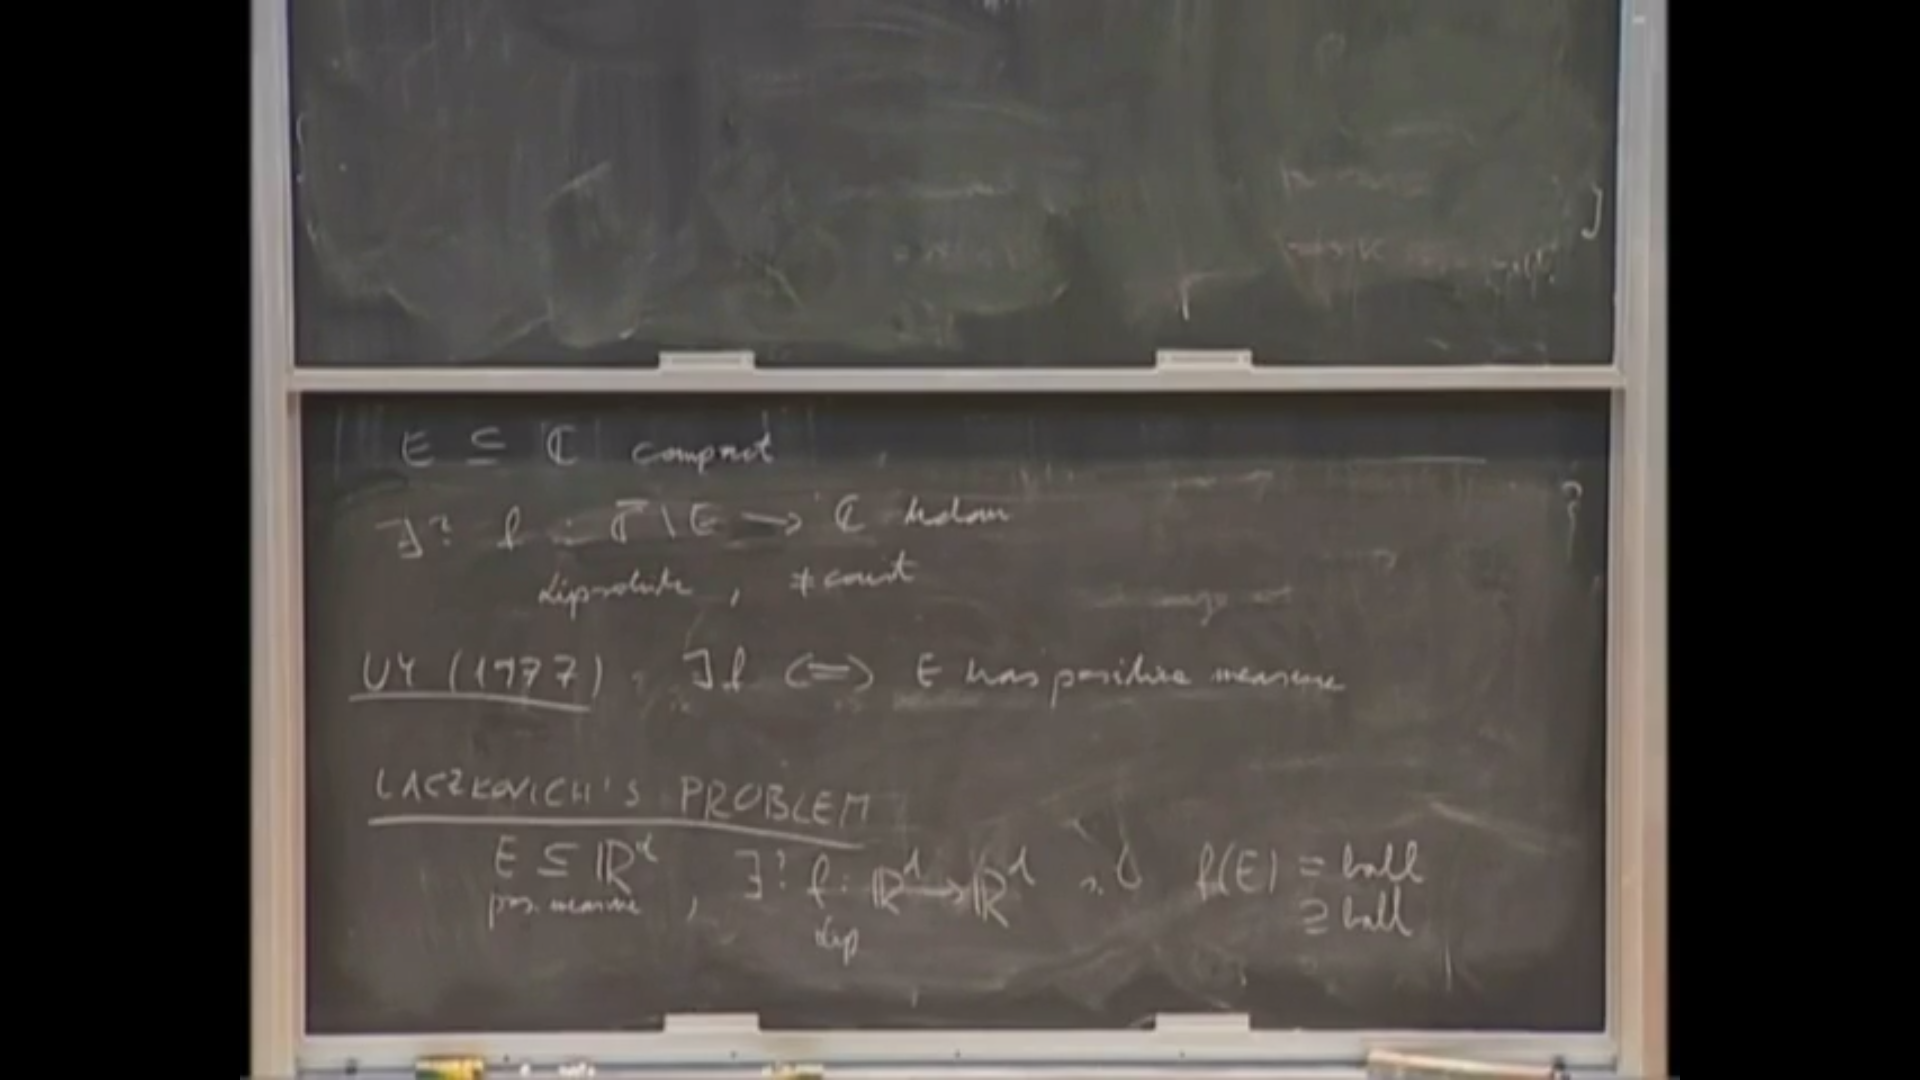 E ⊆ ℂ compact
∃? f : ℂ̄ \ E → ℂ holom
Lipschitz, ≠ const
UY (1977). ∃f ⟺ E has positive measure
LACZKOVICH'S PROBLEM
E ⊆ ℝᵈ, ∃? f: ℝᵈ → ℝᵈ s.t. f(E) = ball
pos. measure Lip ⊇ ball